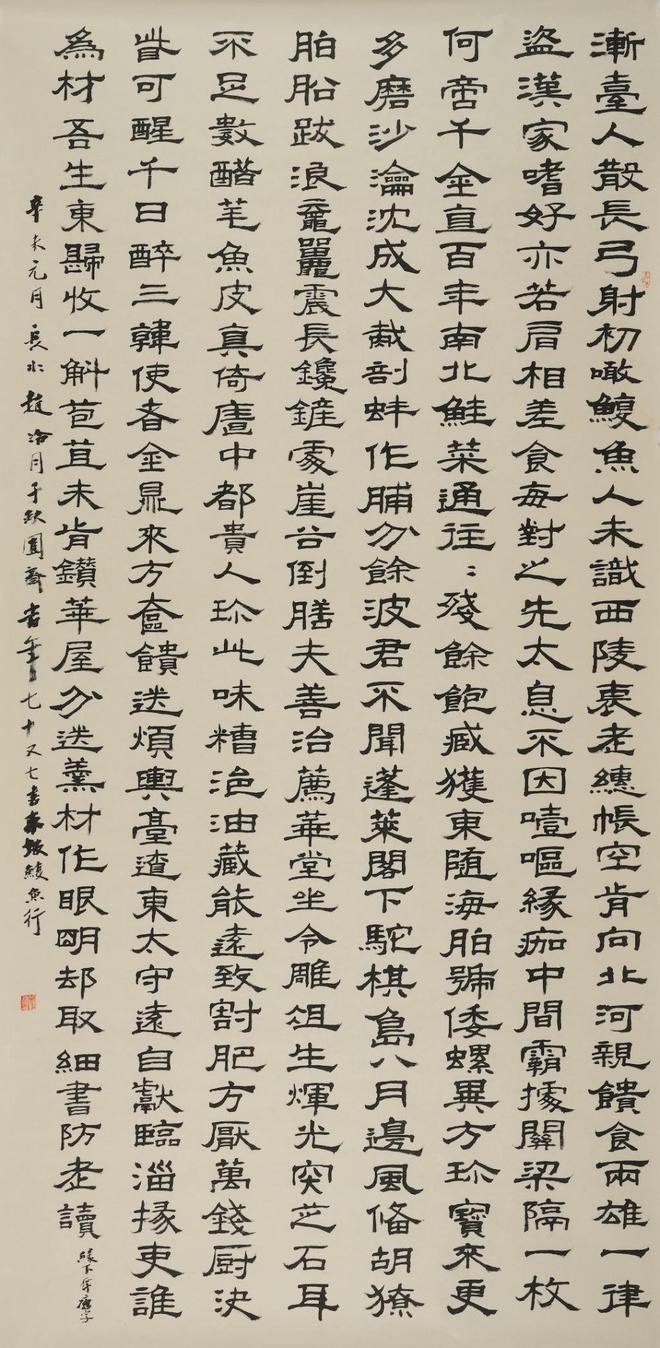 漸臺人散長弓射初噉鰒魚人未識西陵衰老繐帳空肯向北河親饋食兩雄一律
盜漢家嗜好亦若肩相差食每對之先太息不因噎嘔緣痂中間霸據關梁隔一枚
何啻千金直百年南北鮭菜通往〻殘餘飽臧獲東隨海舶號倭螺異方珍寶來更
多磨沙瀹沈成大胾剖蚌作脯分餘波君不聞蓬萊閣下駝棋島八月邊風備胡獠
舶船跋浪黿鼉震長鑱鏟處崖谷倒膳夫善治薦華堂坐令雕俎生輝光突芝石耳
不足數醋芼魚皮真倚廬中都貴人珍此味糟浥油藏能遠致割肥方厭萬錢厨決
眥可醒千日醉三韓使者金鼎來方奩饋送煩輿臺遣東太守遠自獻臨淄掾吏誰
為材吾生東歸收一斛苞苴未肯鑽華屋分送羹材作眼明却取細書防老讀 緣下奪瘡字
辛未元月長水趙冷月于缺圓齋時年七十又七書東坡鰒魚行